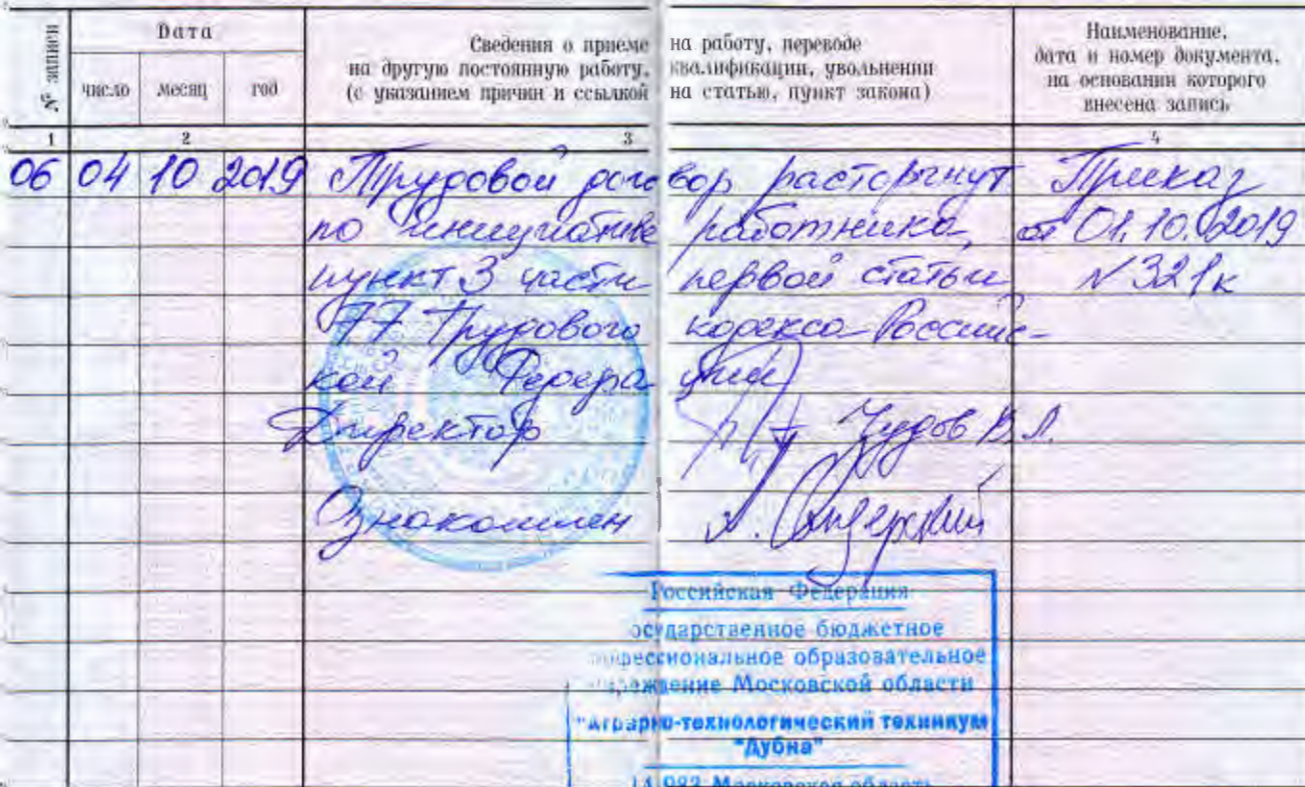 № записи
Дата
Сведения о приеме на работу, переводе
на другую постоянную работу, квалификации, увольнении
(с указанием причин и ссылкой на статью, пункт закона)
Наименование,
дата и номер документа,
на основании которого
внесена запись
число месяц год
1 2 3 4
06 04 10 2019 Трудовой договор расторгнут Приказ
по инициативе работника, от 01.10.2019
пункт 3 части первой статьи N 321к
77 Трудового кодекса Российс-
кой Федерации
Директор Чудов В.Л.
Ознакомлен
Российская Федерация
осударственное бюджетное
профессиональное образовательное
учреждение Московской области
"Аграрно-технологический техникум
"Дубна"
Московская область